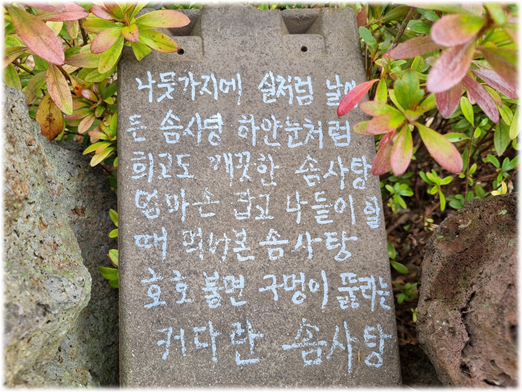 나뭇가지에 실처럼 날아
든 솜사탕 하얀눈처럼
희고도 깨끗한 솜사탕
엄마손 잡고 나들이 할
때 먹어본 솜사탕
호호 불면 구멍이 뚫리는
커다란 솜사탕